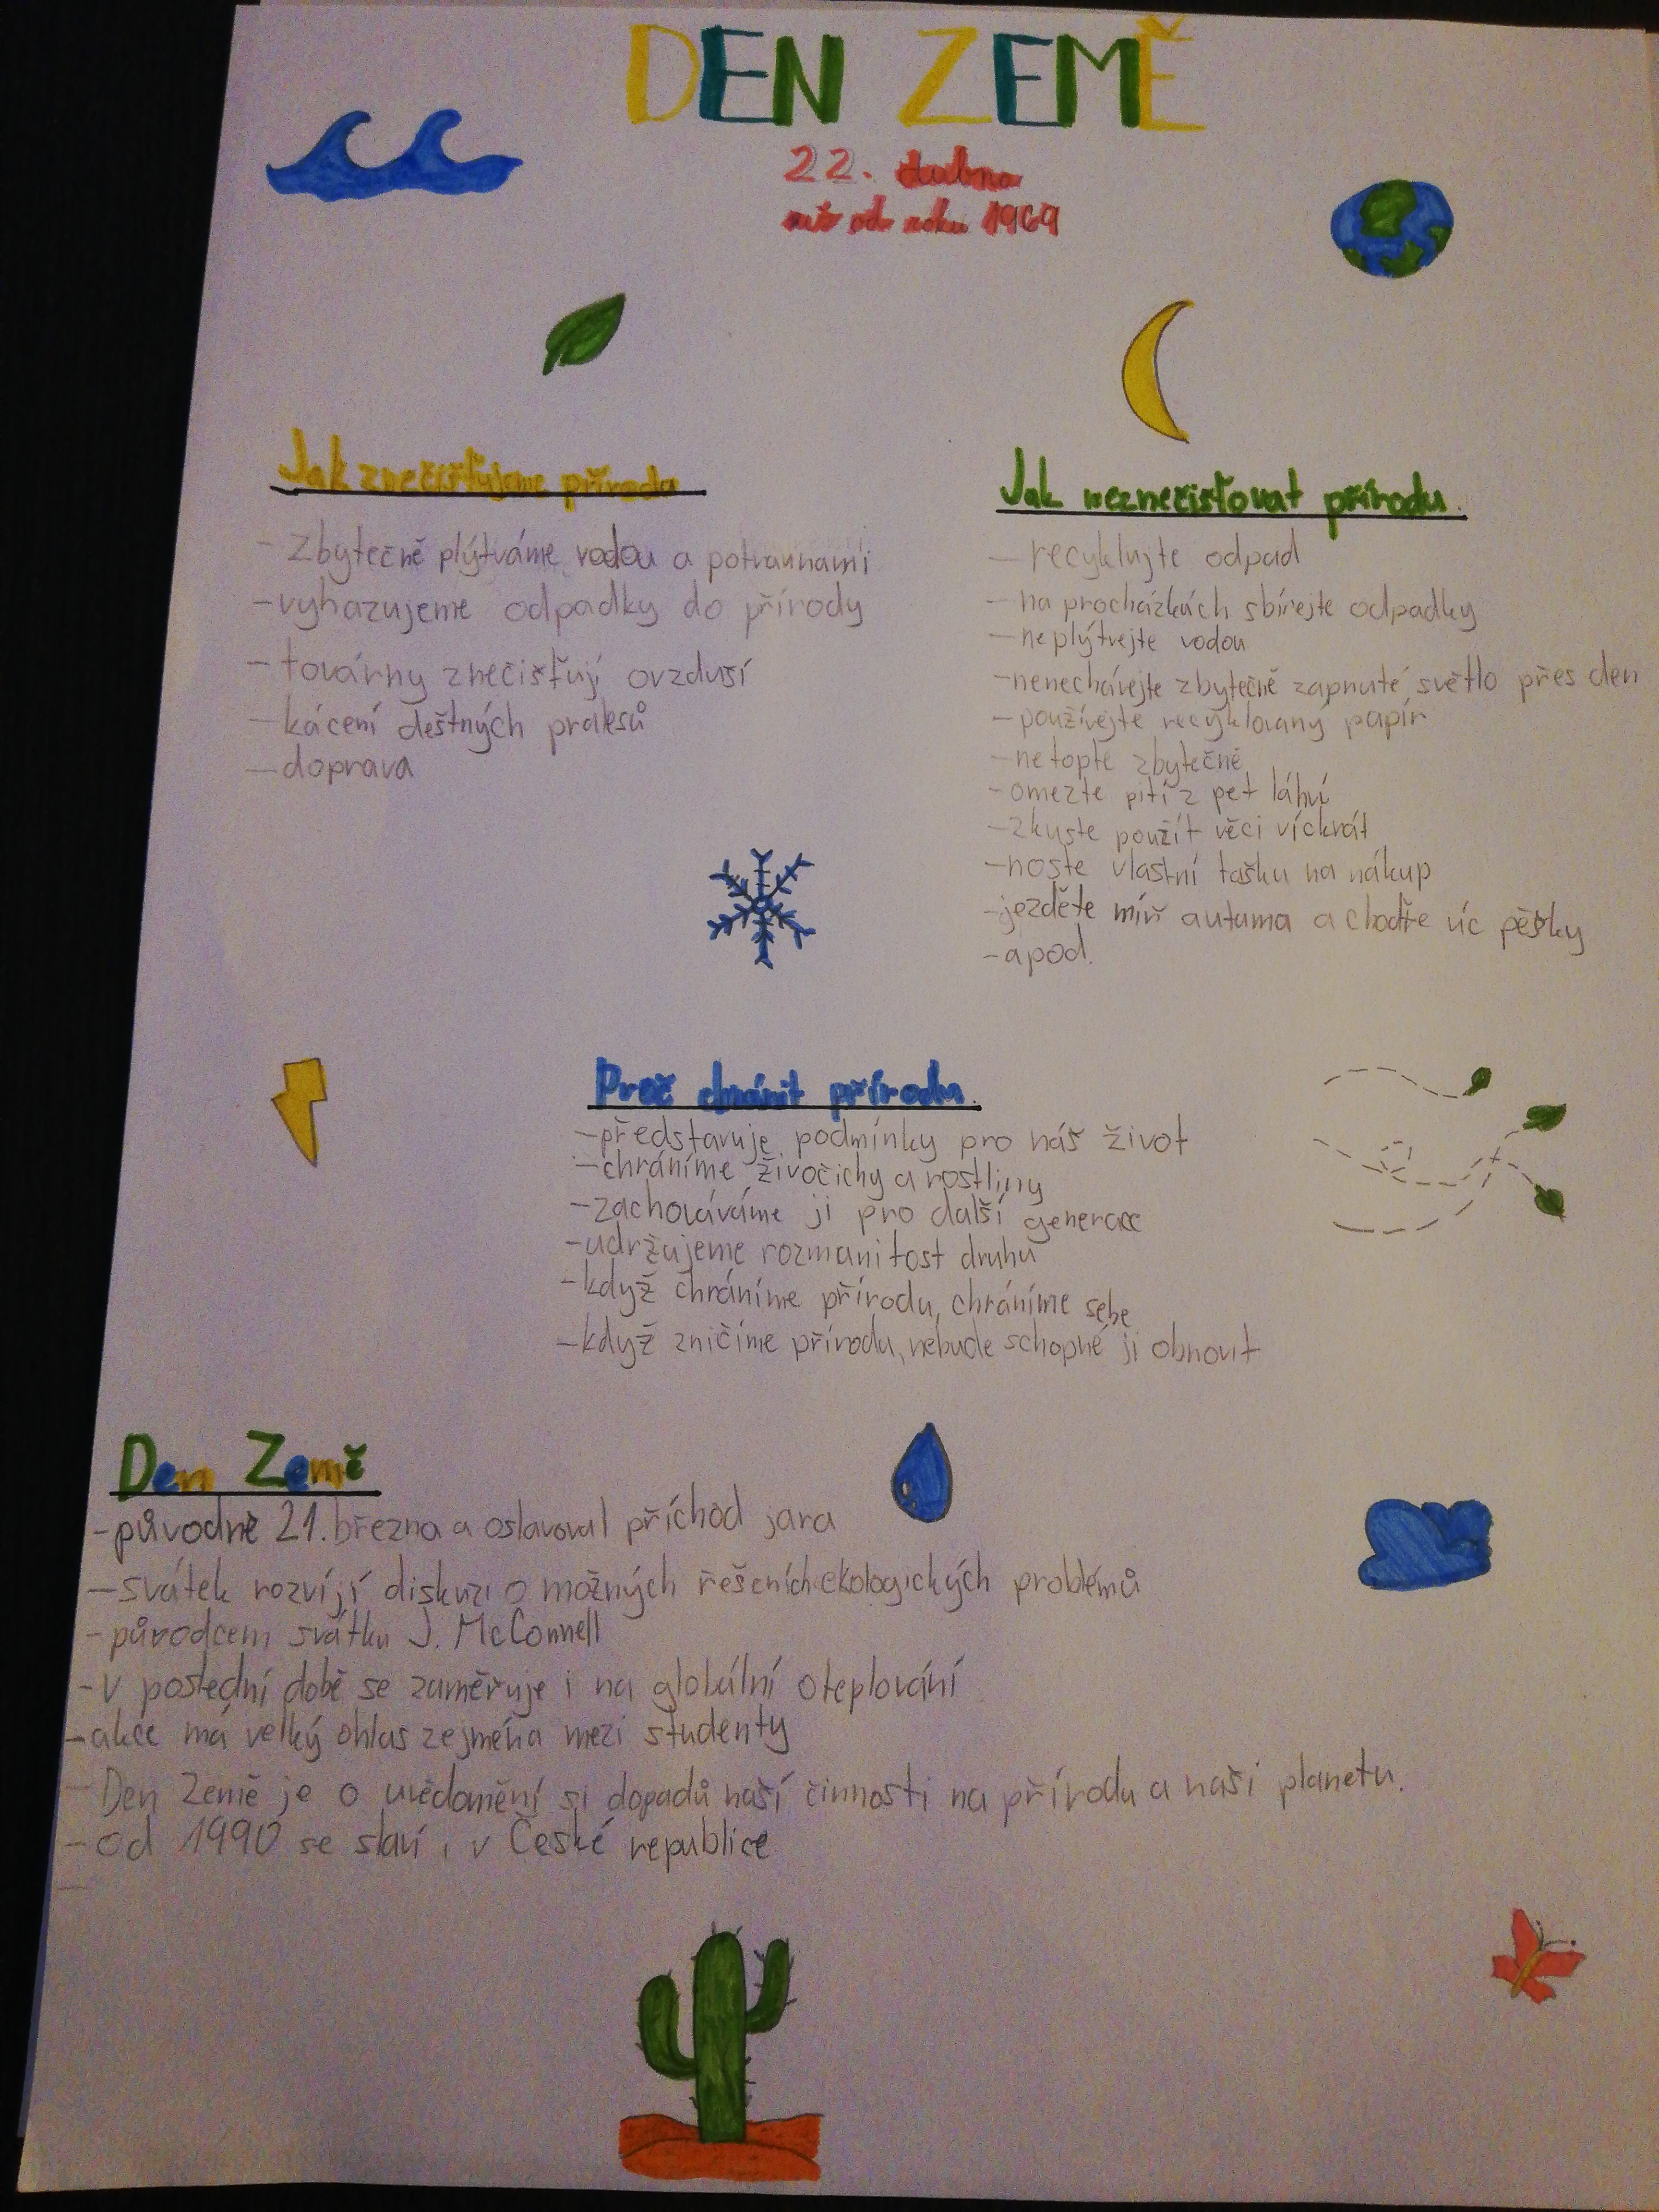 DEN ZEMĚ
22. dubna
už od roku 1969
Jak znečišťujeme přírodu
- zbytečně plýtváme vodou a potravinami
- vyhazujeme odpadky do přírody
- továrny znečišťují ovzduší
- kácení deštných pralesů
- doprava
Jak neznečisťovat přírodu.
- recyklujte odpad
- na procházkách sbírejte odpadky
- neplýtvejte vodou
- nenechávejte zbytečně zapnuté světlo přes den
- používejte recyklovaný papír
- netopte zbytečně
- omezte pití z pet láhví
- zkuste použít věci víckrát
- noste vlastní tašku na nákup
- jezděte míň autama a choďte víc pěšky
- apod.
Proč chránit přírodu.
- představuje podmínky pro náš život
- chráníme živočichy a rostliny
- zachováváme ji pro další generace
- udržujeme rozmanitost druhů
- když chráníme přírodu, chráníme sebe
- když zničíme přírodu, nebude schopné ji obnovit
Den Země
- původně 21. března a oslavoval příchod jara
- svátek rozvíjí diskuzi o možných řešeních ekologických problémů
- původcem svátku J. McConnell
- v poslední době se zaměřuje i na globální oteplování
- akce má velký ohlas zejména mezi studenty
- Den Země je o uvědomění si dopadů naší činnosti na přírodu a naši planetu.
- od 1990 se slaví i v České republice